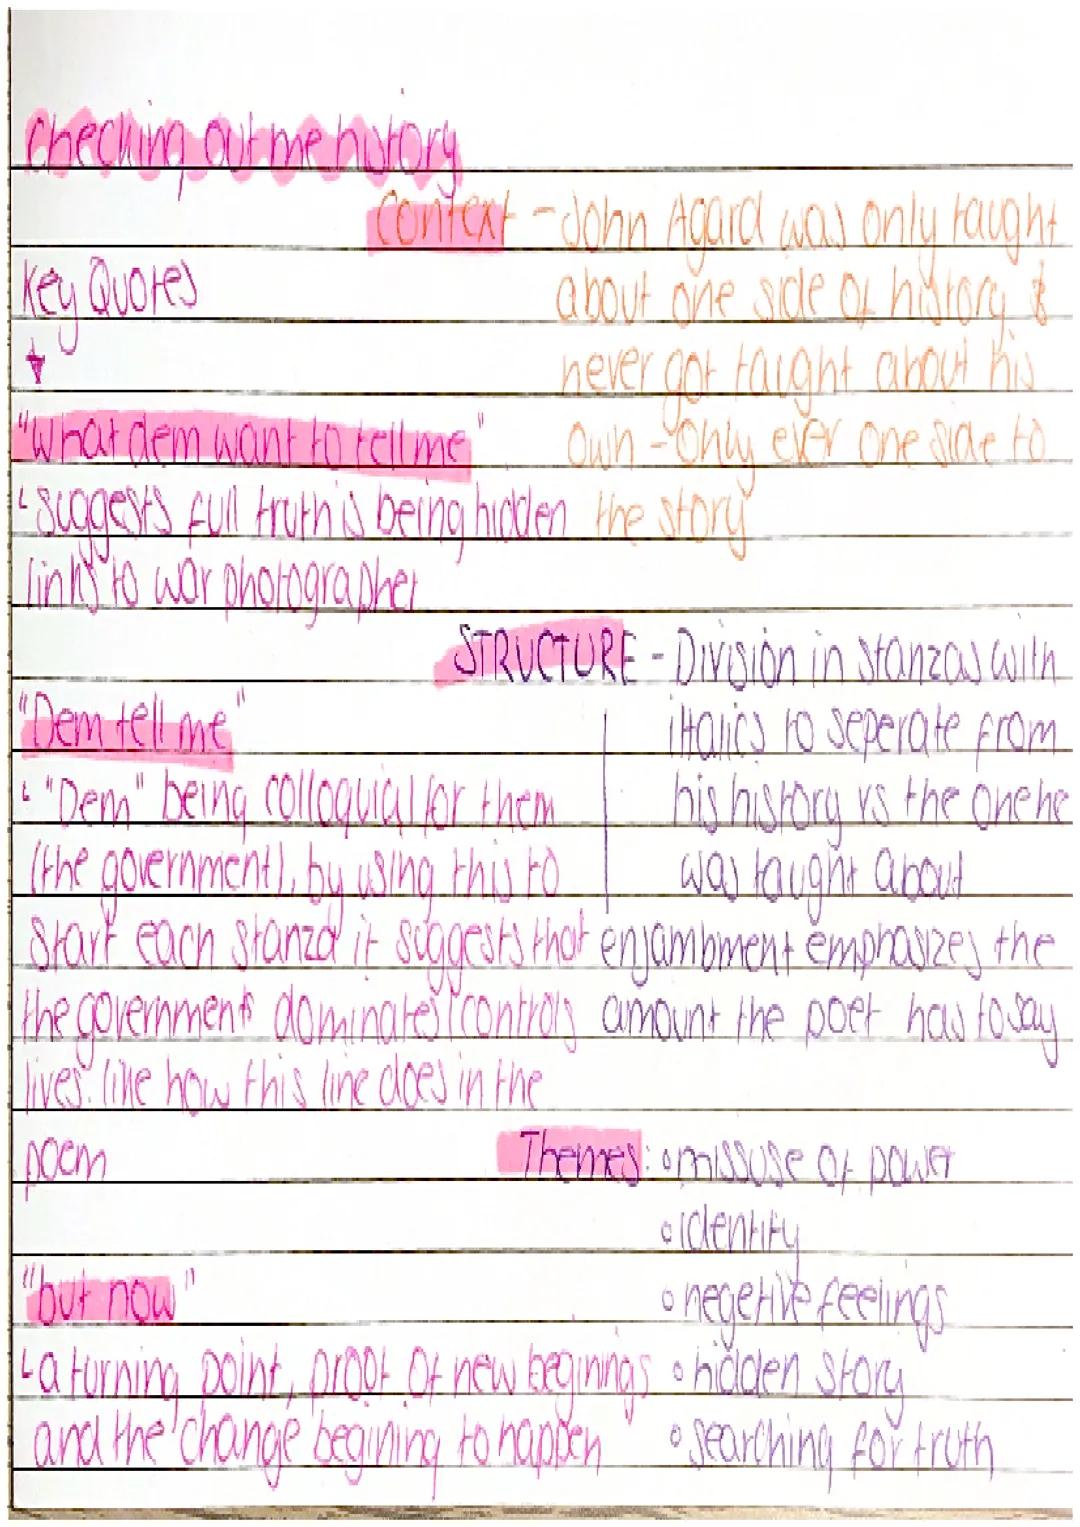 checking out me history
Context - John Agard was only taught
about one side of history &
never got taught about his
own - only ever one side to
the story
Key Quotes
"What dem want to tell me"
suggests full truth is being hidden
links to war photographer
STRUCTURE - Division in stanzas with
italics to seperate from
his history vs the one he
was taught about
enjambment emphasizes the
amount the poet has to say
"Dem tell me"
"Dem" being colloquial for them
(the government), by using this to
start each stanza it suggests that
the governments dominates/controls
lives. like how this line does in the
poem
Themes: ◦ missuse of power
◦ identity
◦ negetive feelings
◦ hidden story
◦ searching for truth
"but now"
a turning point, proof of new beginings
and the change begining to happen